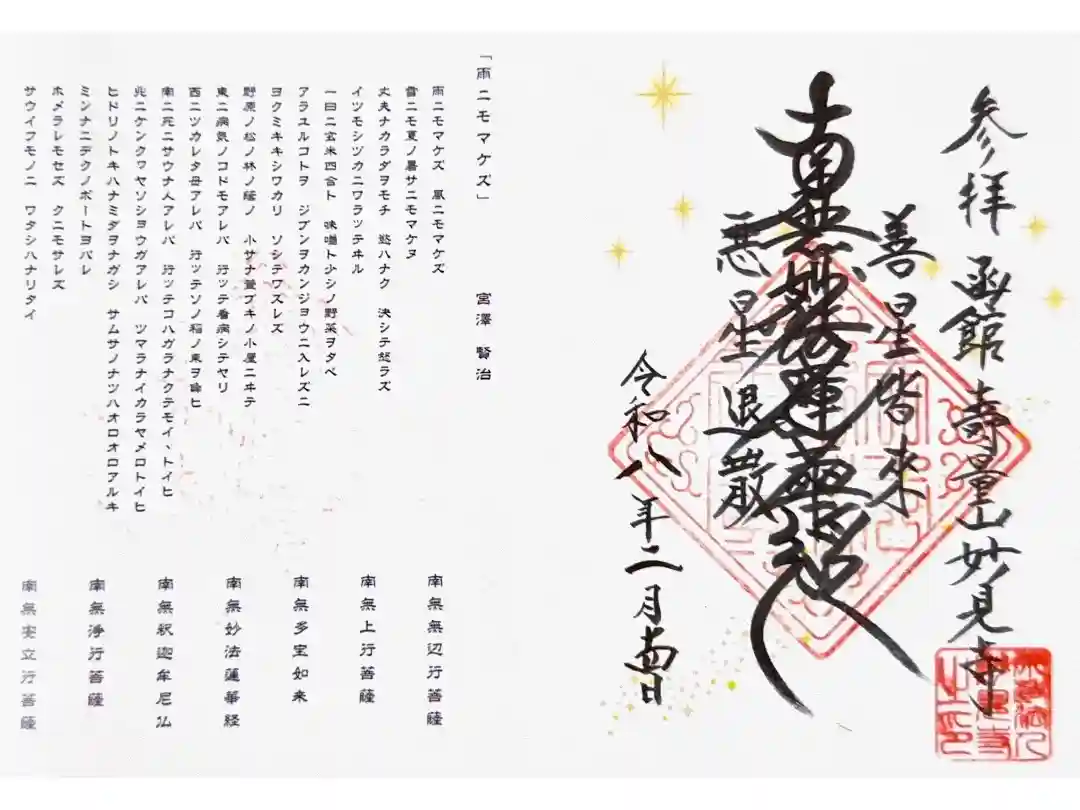 参拝 函館 壽量山妙見寺
善星皆来
南無妙法蓮華経
悪星退散
令和八年二月 日
「雨ニモマケズ」 宮澤 賢治
雨ニモマケズ 風ニモマケズ
雪ニモ夏ノ暑サニモマケヌ
丈夫ナカラダヲモチ 慾ハナク 決シテ怒ラズ
イツモシヅカニワラッテヰル
一日ニ玄米四合ト 味噌ト少シノ野菜ヲタベ
アラユルコトヲ ジブンヲカンジョウニ入レズニ
ヨクミキキシワカリ ソシテワスレズ
野原ノ松ノ林ノ蔭ノ 小サナ萱ブキノ小屋ニヰテ
東ニ病気ノコドモアレバ 行ッテ看病シテヤリ
西ニツカレタ母アレバ 行ッテソノ稲ノ束ヲ負ヒ
南ニ死ニサウナ人アレバ 行ッテコハガラナクテモイヽトイヒ
北ニケンクヮヤソショウガアレバ ツマラナイカラヤメロトイヒ
ヒドリノトキハナミダヲナガシ サムサノナツハオロオロアルキ
ミンナニデクノボートヨバレ
ホメラレモセズ クニモサレズ
サウイフモノニ ワタシハナリタイ
南無無辺行菩薩
南無上行菩薩
南無多宝如来
南無妙法蓮華経
南無釈迦牟尼仏
南無浄行菩薩
南無安立行菩薩